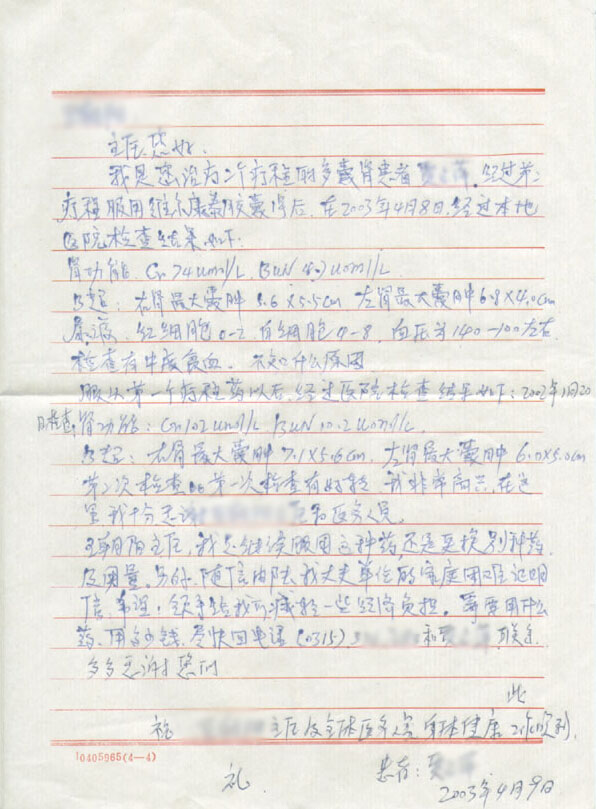 主任您好.
我是您治疗二个疗程的多囊肾患者 经过第二
疗程服用 胶囊 后. 在2003年4月8日. 经过本地
医院检查结果如下.
肾功能. Cr 74umol/L. BUN umol/L
B超: 右肾最大囊肿 5.6×5.5cm 左肾最大囊肿6.8×4.0cm
尿液. 红细胞0-2. 白细胞4-8. 血压为140-100左右.
检查有 贫血. 不知什么原因
服从第一个疗程药以后. 经过医院检查结果如下: 2002年 月20
日检查肾功能: Cr 102umol/L BUN 10.2umol/L.
B超: 右肾最大囊肿7.1×5.6cm. 左肾最大囊肿6.0×5.0cm
第二次检查比第一次检查有好转. 我非常高兴. 在这
里我十分感谢 和医务人员.
主任. 我是继续服用这种药. 还是更换别种药.
及用量. 另外. 随信附 我丈夫单位的家庭困难证明
信 给我 减轻一些经济负担. 需要用什么
药. 用多少钱. 尽快回电话(0315). 和 联系
多多感谢您们
此
祝 主任及全体医务人员 身体健康 工作顺利.
礼. 患者:
2003年4月9日
10405965(4-4)